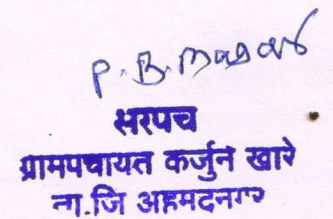 P. B. 
सरपंच
ग्रामपंचायत कर्जुन खारे
ता.जि अहमदनगर